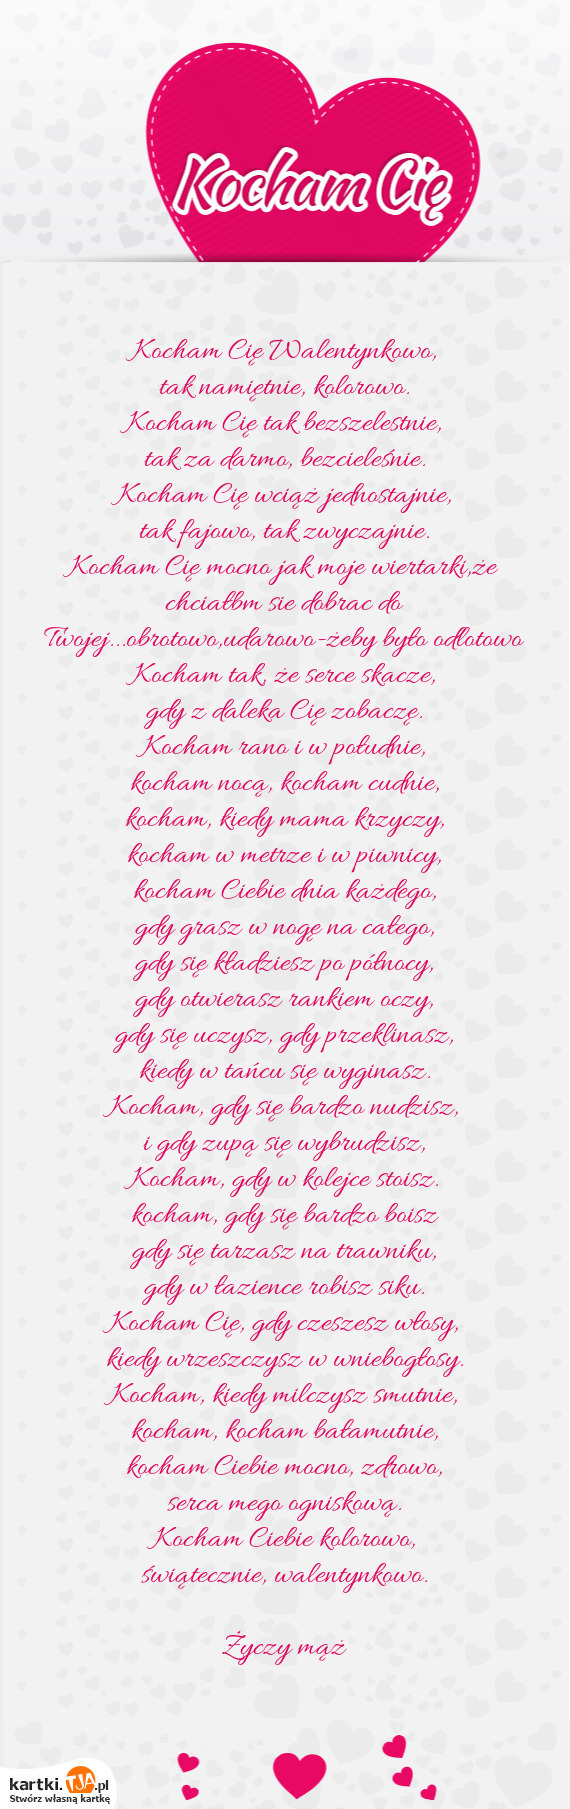 Kocham Cię
Kocham Cię Walentynkowo,
tak namiętnie, kolorowo.
Kocham Cię tak bezszelestnie,
tak za darmo, bezcieleśnie.
Kocham Cię wciąż jednostajnie,
tak fajowo, tak zwyczajnie.
Kocham Cię mocno jak moje wiertarki,że
chciałbm sie dobrac do
Twojej...obrotowo,udarowo-żeby było odlotowo
Kocham tak, że serce skacze,
gdy z daleka Cię zobaczę.
Kocham rano i w południe,
kocham nocą, kocham cudnie,
kocham, kiedy mama krzyczy,
kocham w metrze i w piwnicy,
kocham Ciebie dnia każdego,
gdy grasz w nogę na całego,
gdy się kładziesz po północy,
gdy otwierasz rankiem oczy,
gdy się uczysz, gdy przeklinasz,
kiedy w tańcu się wyginasz.
Kocham, gdy się bardzo nudzisz,
i gdy zupą się wybrudzisz,
Kocham, gdy w kolejce stoisz.
kocham, gdy się bardzo boisz
gdy się tarzasz na trawniku,
gdy w łazience robisz siku.
Kocham Cię, gdy czeszesz włosy,
kiedy wrzeszczysz w wniebogłosy.
Kocham, kiedy milczysz smutnie,
kocham, kocham bałamutnie,
kocham Ciebie mocno, zdrowo,
serca mego ogniskową.
Kocham Ciebie kolorowo,
świątecznie, walentynkowo.
Życzy mąż
kartki.TJA.pl
Stwórz własną kartkę